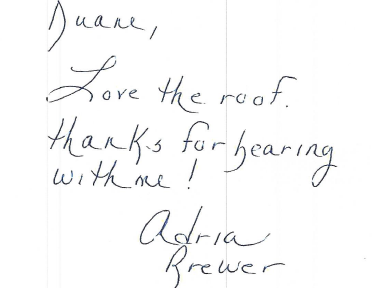 Duane,
Love the roof.
thanks for bearing
with me!
Adria
Brewer